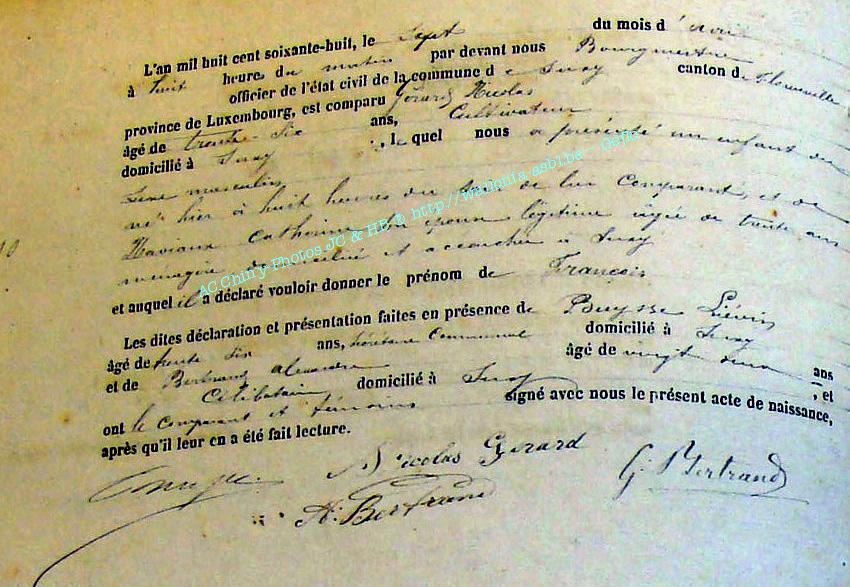 L'an mil huit cent soixante-huit, le Sept du mois d'Avril
à huit heures du matin par devant nous Bourgmestre
officier de l'état civil de la commune de Suxy canton de Florenville
province de Luxembourg, est comparu Gérard Nicolas
âgé de trente-six ans, Cultivateur
domicilié à Suxy, le quel nous a présenté un enfant du
sexe masculin
né hier à huit heures du de lui Comparant, et de
Catherine son épouse légitime âgée de trente ans
ménagère domiciliée et accouchée à Suxy
et auquel il a déclaré vouloir donner le prénom de François
Les dites déclaration et présentation faites en présence de Buysse Liévin
âgé de trente six ans, Sécretaire Communal domicilié à Suxy
et de Bertrand Alexandre âgé de vingt ans
Célibataire domicilié à Suxy, et
ont le comparant et témoins signé avec nous le présent acte de naissance,
après qu'il leur en a été fait lecture.
Nicolas Gerard
G. Bertrand
A. Bertrand
AC Chiny Photos JC & HB © http://wallonia.asbl.be - Gefic
10